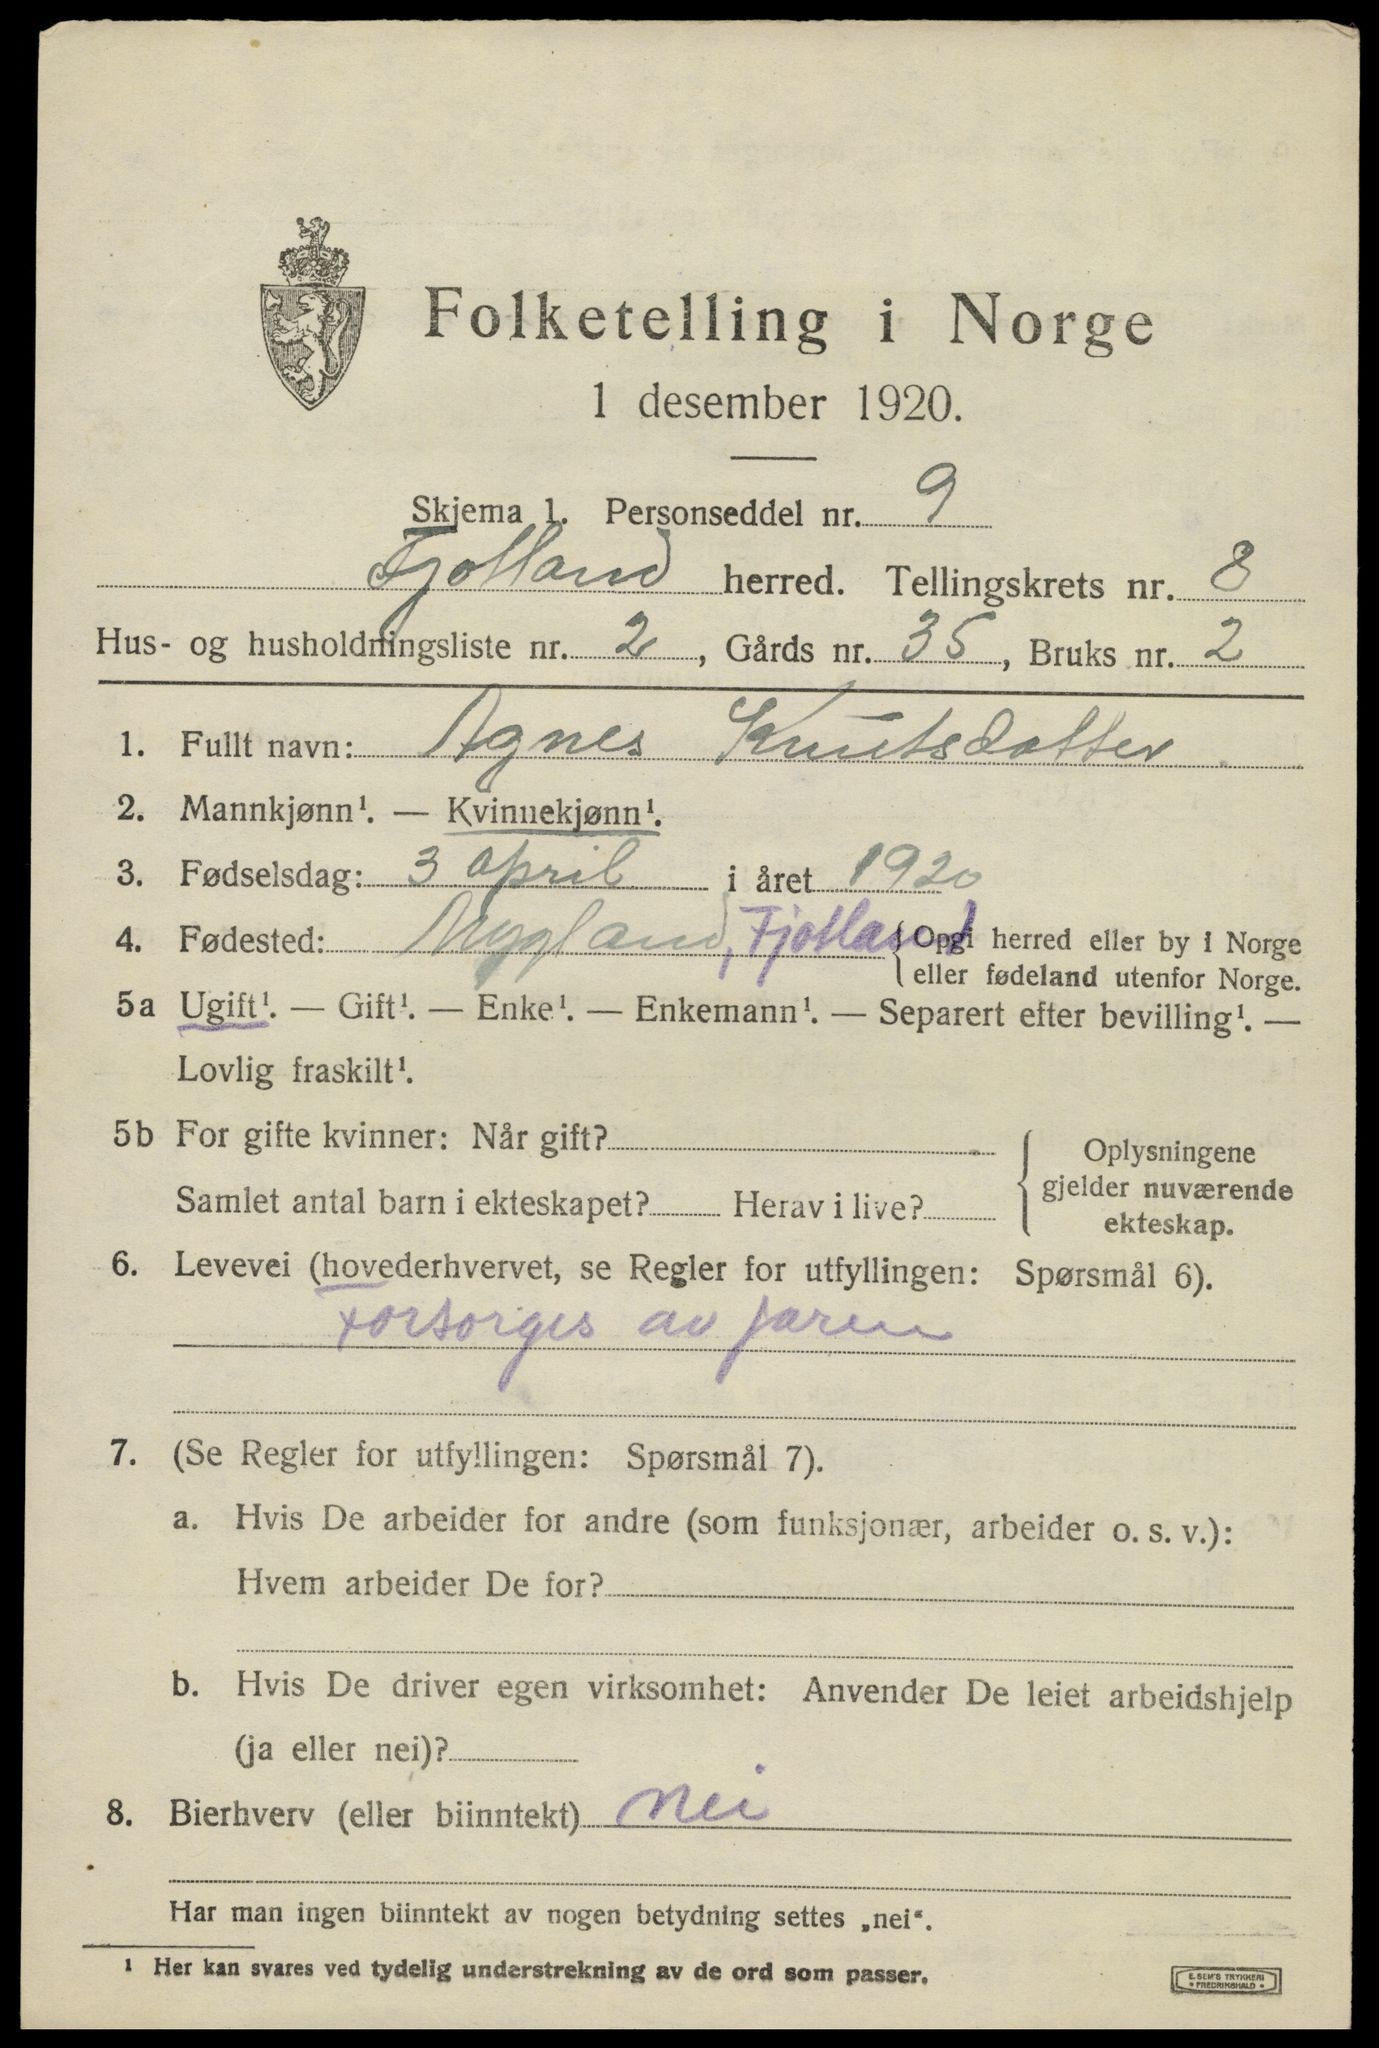 Folketelling i Norge
1 desember 1920.
Skjema 1. Personseddel nr. 9
Fjotland herred. Tellingskrets nr. 8
Hus- og husholdningsliste nr. 2, Gårds nr. 35, Bruks nr. 2
1. Fullt navn: Agnes Knutsdatter
2. Mannkjønn¹. — Kvinnekjønn¹.
3. Fødselsdag: 3 april i året 1920
4. Fødested: Mygland, Fjotland {Opgi herred eller by i Norge
eller fødeland utenfor Norge.
5a Ugift¹. — Gift¹. — Enke¹. — Enkemann¹. — Separert efter bevilling¹. —
Lovlig fraskilt¹.
5b For gifte kvinner: Når gift?
Samlet antal barn i ekteskapet? Herav i live?
Oplysningene
gjelder nuværende
ekteskap.
6. Levevei (hovederhvervet, se Regler for utfyllingen: Spørsmål 6).
Forsorges av faren
7. (Se Regler for utfyllingen: Spørsmål 7).
a. Hvis De arbeider for andre (som funksjonær, arbeider o. s. v.):
Hvem arbeider De for?
b. Hvis De driver egen virksomhet: Anvender De leiet arbeidshjelp
(ja eller nei)?
8. Bierhverv (eller biinntekt) nei
Har man ingen biinntekt av nogen betydning settes „nei“.
¹ Her kan svares ved tydelig understrekning av de ord som passer.
E. SEM'S TRYKKERI
• FREDRIKSHALD •